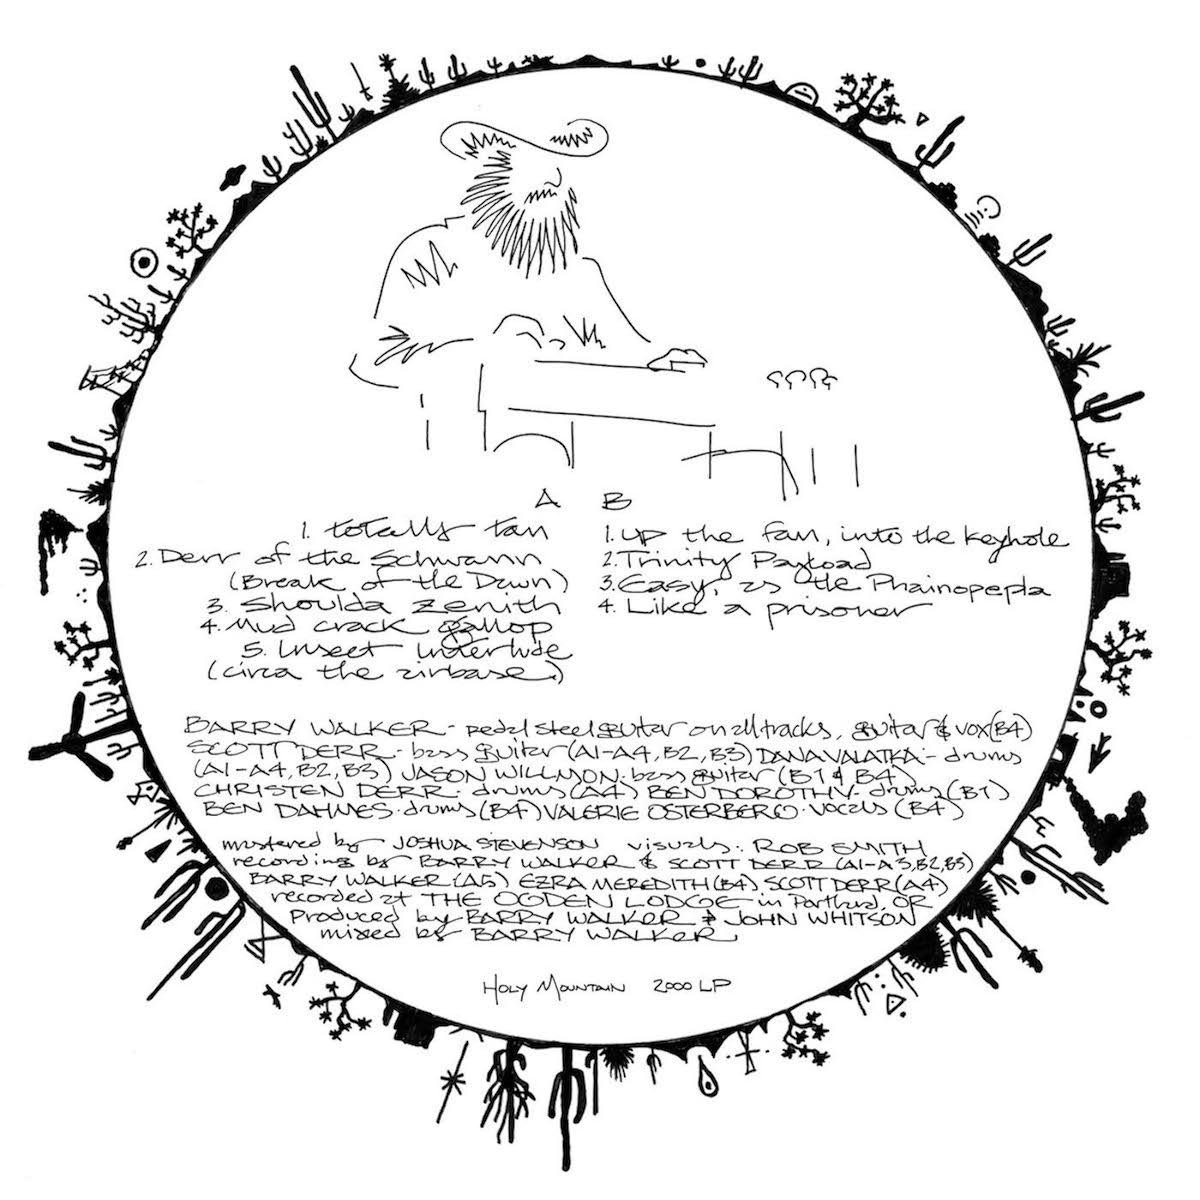 A
1. totally tan
2. Derr of the Schwann
(Break of the Dawn)
3. Shoulda zenith
4. Mud crack gallop
5. Insect interlude
(circa the airbase)
B
1. up the fan, into the keyhole
2. Trinity Payload
3. Easy, as the Phainopepla
4. Like a prisoner
BARRY WALKER - pedal steel guitar on all tracks, guitar & vox (B4)
SCOTT DERR - bass guitar (A1-A4, B2, B3) DANA VALATKA - drums
(A1-A4, B2, B3) JASON WILLMON - bass guitar (B1 & B4)
CHRISTEN DERR - drums (A4) BEN DOROTHY - drums (B1)
BEN DAHMES - drums (B4) VALERIE OSTERBERG - vocals (B4)
mastered by JOSHUA STEVENSON visuals: ROB SMITH
recordings by BARRY WALKER & SCOTT DERR (A1-A3, B2, B3)
BARRY WALKER (A5) EZRA MEREDITH (B4) SCOTT DERR (A4)
recorded at THE OGDEN LODGE in Portland, OR
Produced by BARRY WALKER & JOHN WHITSON
mixed by BARRY WALKER
HOLY MOUNTAIN 2000 LP